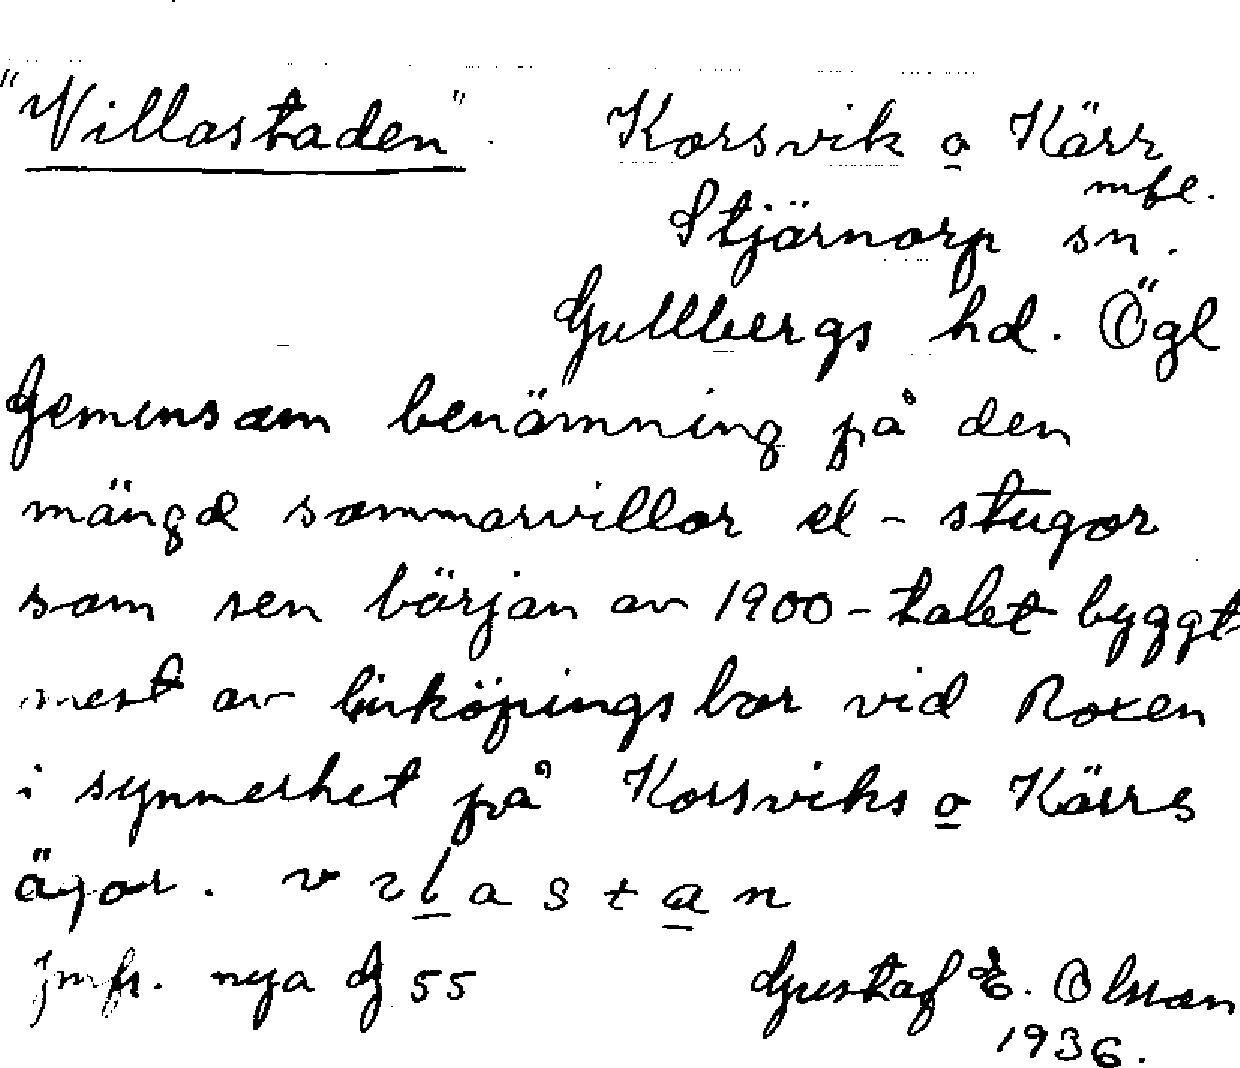 "Villastaden". Korsvik o Kärr
mfl.
Stjärnorp sn.
Gullbergs hd. Ögl
Gemensam benämning på den
mängd sommarvillor el - stugor
som sen början av 1900-talet byggt
mest av linköpingsbor vid Roxen
i synnerhet på Korsviks o Kärrs
ägor. v ı l a s t a n
jmfr. nya G 55 Gustaf E. Olsson
1936.